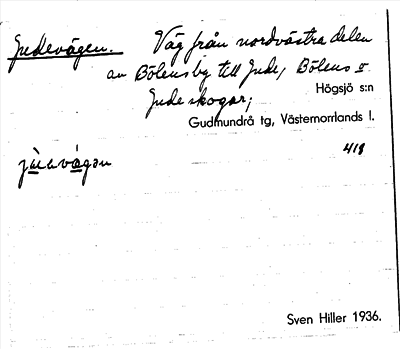 Judevägen. Väg från nordvästra delen
av Bölens by till Jude, Bölens o
Jude skogar;
Högsjö s:n
Gudmundrå tg, Västernorrlands l.
418
Sven Hiller 1936.